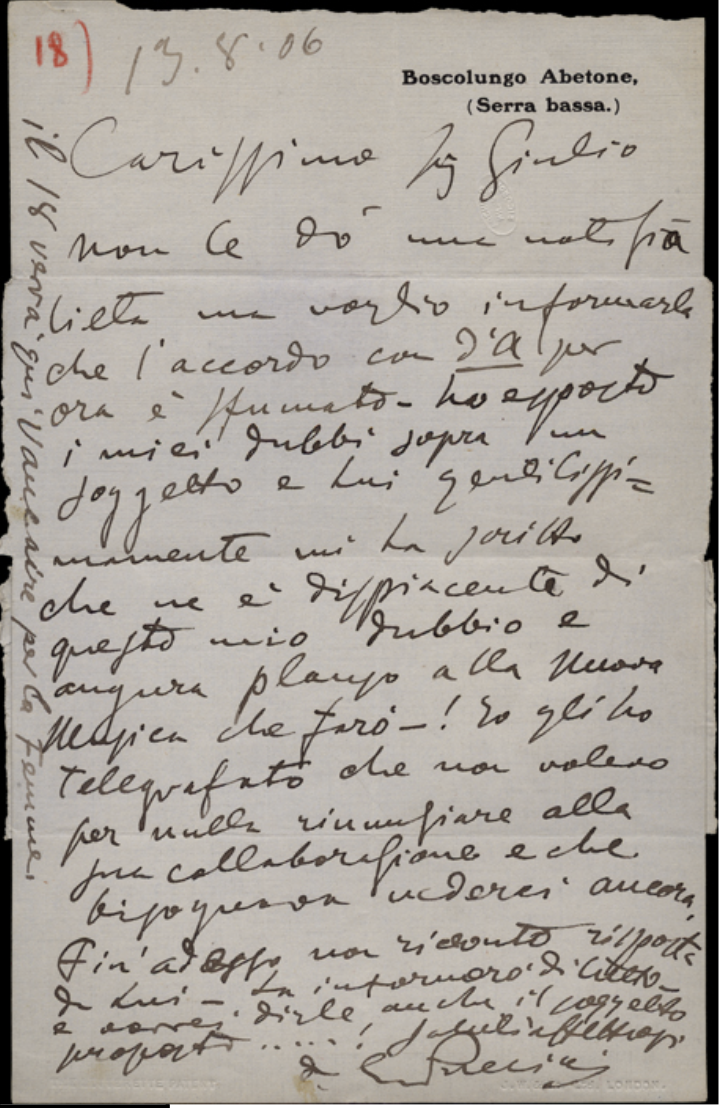 18)
13.8.06
Boscolungo Abetone,
(Serra bassa.)
Carissimo Sig Giulio
non Le dò una notizia
lieta ma voglio informarla
che l'accordo con d'A per
ora è sfumato - ho esposto
i miei dubbi sopra un
soggetto e Lui gentilissi=
mamente mi ha scritto
che ne è dispiacente di
questo mio dubbio e
augura plauso alla nuova
Musica che farò - ! Io gli ho
telegrafato che non volevo
per nulla rinunziare alla
sua collaborazione e che
bisognava vederci ancora,
Fin' adesso non ricevuto risposta
da Lui - La informerò di tutto
e vorrei dirle anche il soggetto
proposto ..... ! Saluti affettuosi
da GPuccini
il 18 verrà qui Vaucaire per la Femme.